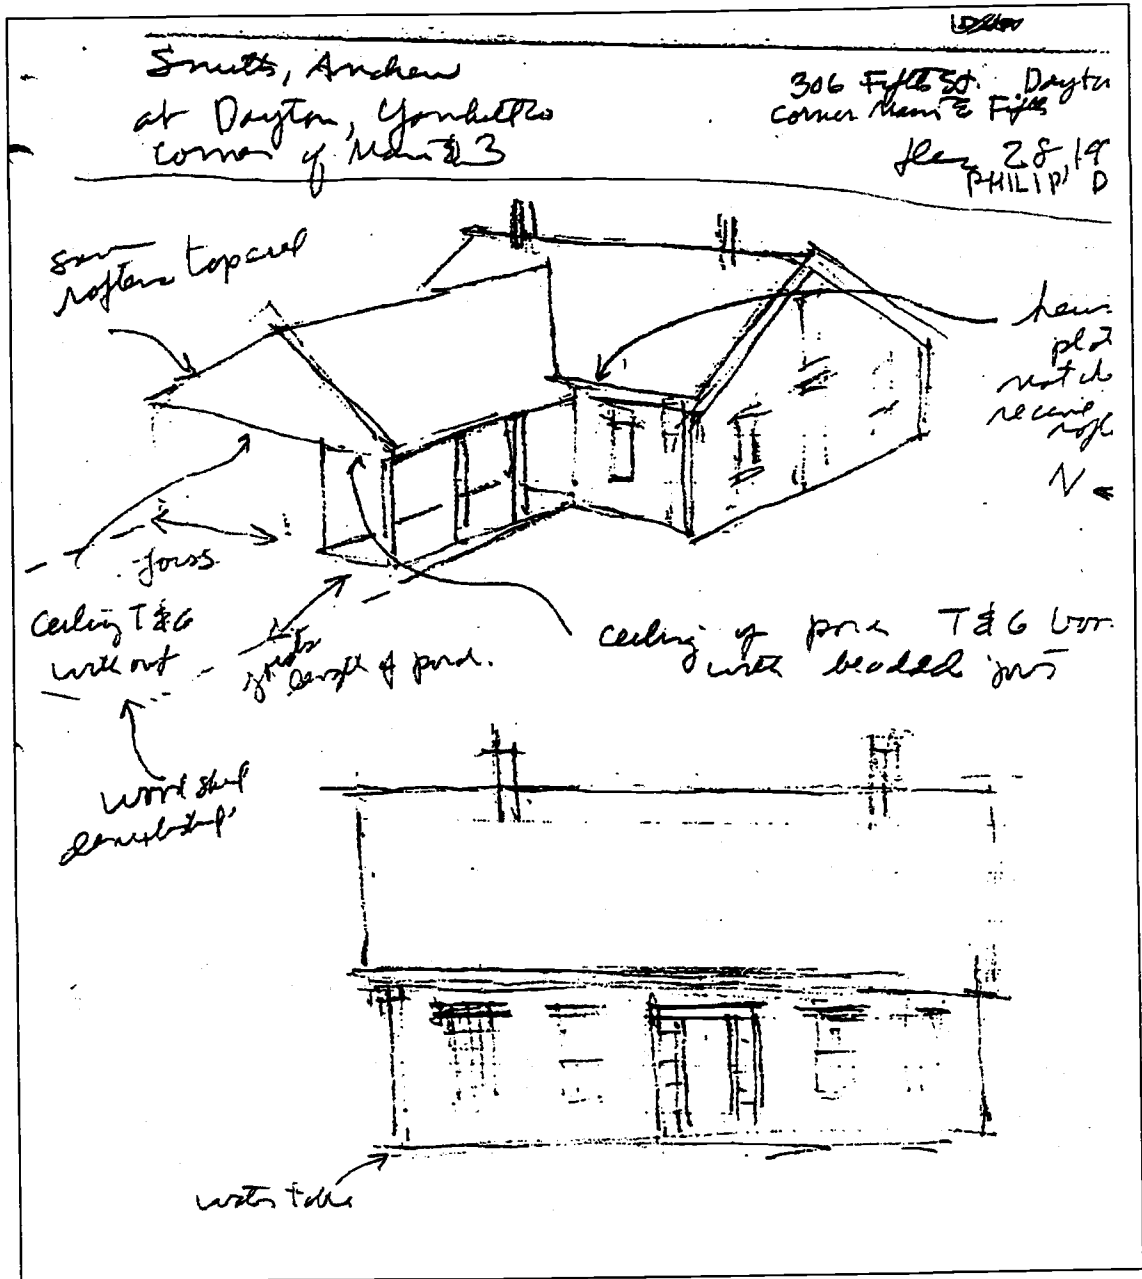 Smith, Andrew
at Dayton, Yamhill Co
Corner of Main & 3
306 Fifth St. Dayto
Corner Main & Fifth
28, 19
PHILIP D
rafters tapered
hew
pla
notch
receive
raft
N
joists
Ceiling T & G
without
joists
length of porch.
ceiling of porch T & G boar
with beaded joint
wood shed
demolished
water table